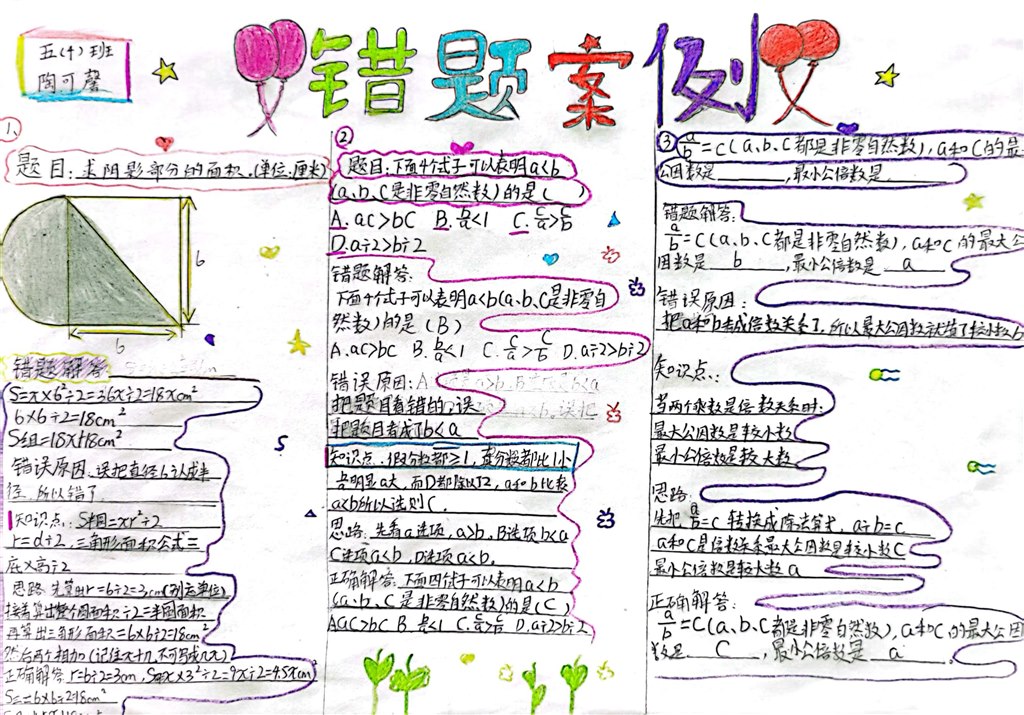 五(4)班
陶可馨
错题案例
1、
题目:求阴影部分的面积.(单位:厘米)
6
6
错题解答
S=π×6²÷2=36π÷2=18πcm²
6×6÷2=18cm²
S组=18π+18cm²
错误原因:误把直径6认成半
径,所以错了
知识点:S半圆=πr²÷2
r=d÷2,三角形面积公式=
底×高÷2
思路:先算出r=6÷2=3cm(别忘单位)
接着算出整个圆面积÷2=半圆面积
再算出三角形面积=6×6÷2=18cm²
然后两个相加(记住π+几,不可写成几π)
正确解答:r=6÷2=3cm,S半=π×3²÷2=9π÷2=4.5πcm²
S=6×6÷2=18cm²
②
题目:下面4个式子可以表明a<b
(a、b、C是非零自然数)的是(
A. ac>bC B. b/a<1 C. c/a>c/b
D.a÷2>b÷2
错题解答:
下面4个式子可以表明a<b(a、b、C是非零自
然数)的是(B)
A.ac>bc B.b/a<1 C.c/a>c/b D.a÷2>b÷2
错误原因:
把题目看错的,误
把题目看成了b<a
知识点:假分数都≥1,真分数都比1小
B明显a大,而D都除以了2,a和b比较
a<b所以选则C.
思路:先看a选项,a>b,B选项b<a
C选项a<b,D选项a<b.
正确解答:下面四个式子可以表明a<b
(a、b、C是非零自然数)的是(C)
A.aC>bC B.b/a<1 C.c/a>c/b D.a÷2>b÷2
③ a/b=c(a、b、C都是非零自然数),a和C的最大
公因数是______,最小公倍数是
错题解答:
a/b=C(a、b、C都是非零自然数),a和C的最大公
因数是 b ,最小公倍数是 a
错误原因:
把a和b去成倍数关系了,所以最大公因数就填了较小数b
知识点:
当两个乘数是倍数关系时:
最大公因数是较小数
最小公倍数是较大数
思路:
先把a/b=c转换成除法算式,a÷b=c
a和C是倍数关系最大公因数是较小数C
最小公倍数是较大数a
正确解答:
a/b=C(a、b、C都是非零自然数),a和C的最大公因
数是 C ,最小公倍数是 a